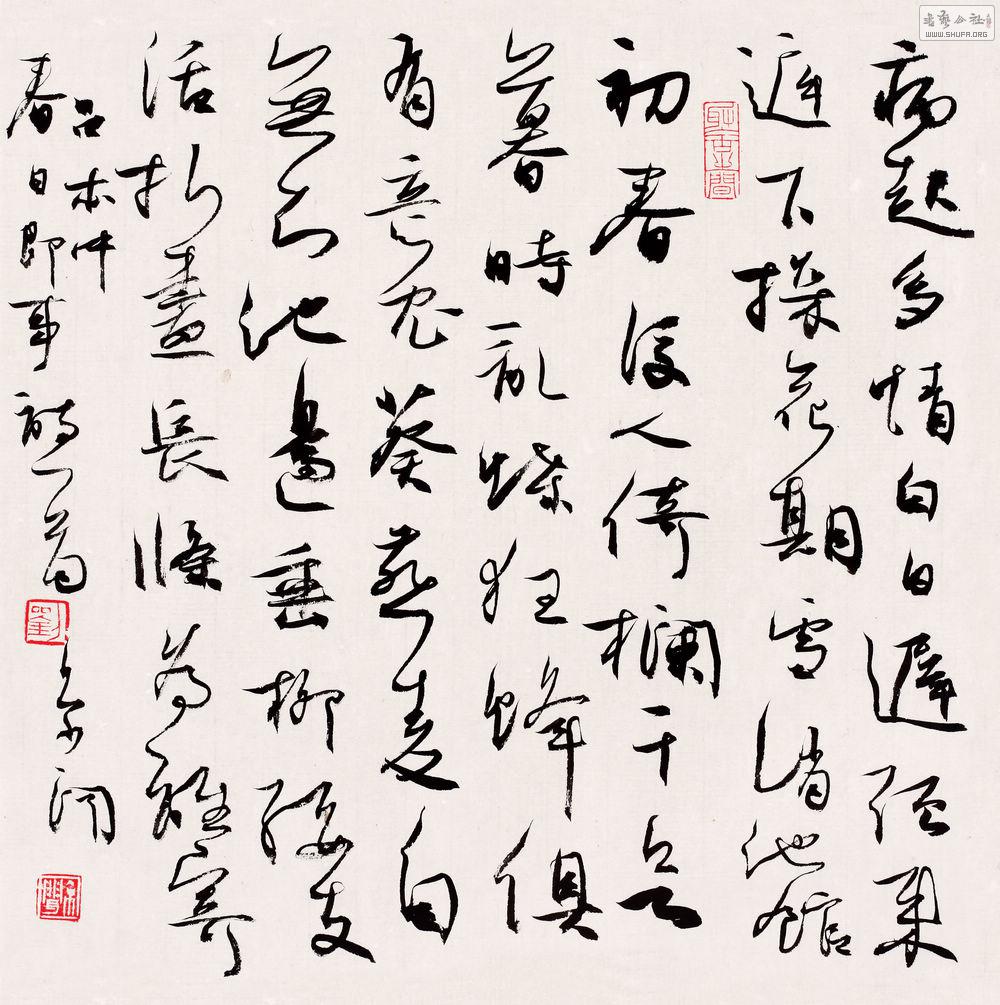 病起多情白日遲强来
庭下探花期雪消池館
初春後人倚欄干欲
暮時乱蝶狂蜂俱
有意兔葵燕麥自
無知池邊垂柳腰支
活折盡長條為誰寄
吕本中
春日即事詩一首 劉 京闻
書藝公社
WWW.SHUFA.ORG